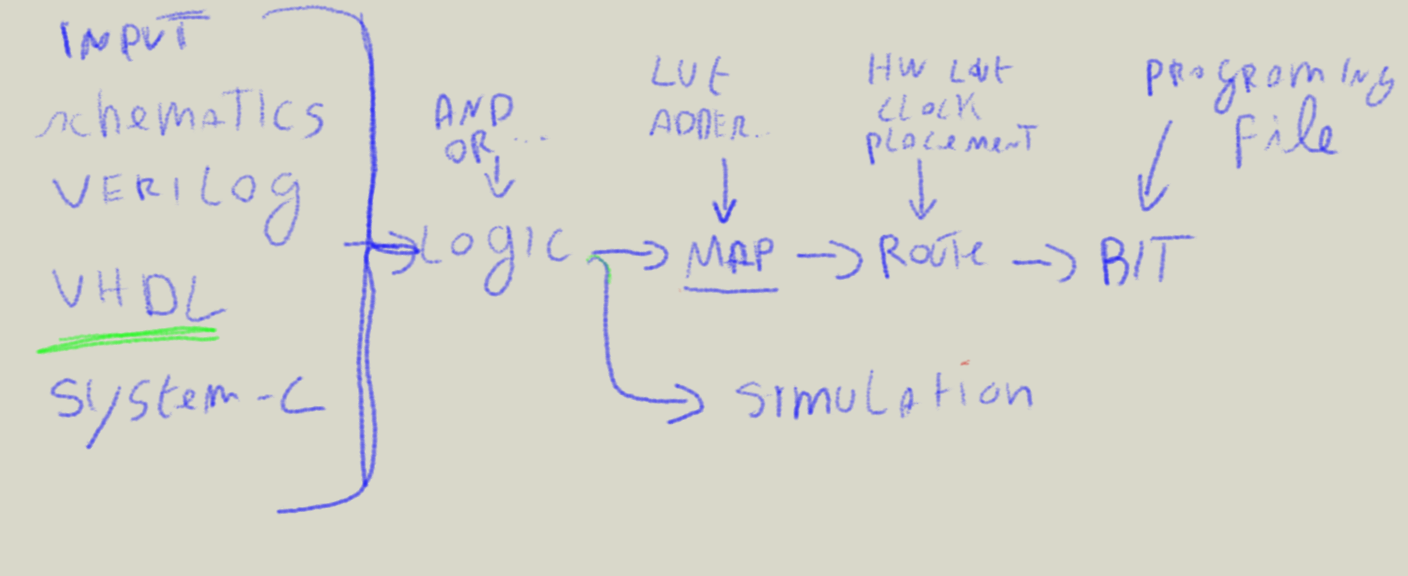 INPUT
schematics
VERILOG
VHDL
System-C
AND
OR...
LOGIC
LUT
ADDER..
MAP
HW
CLOCK
placement
ROUTE
PROGRAMING
File
BIT
SIMULATION